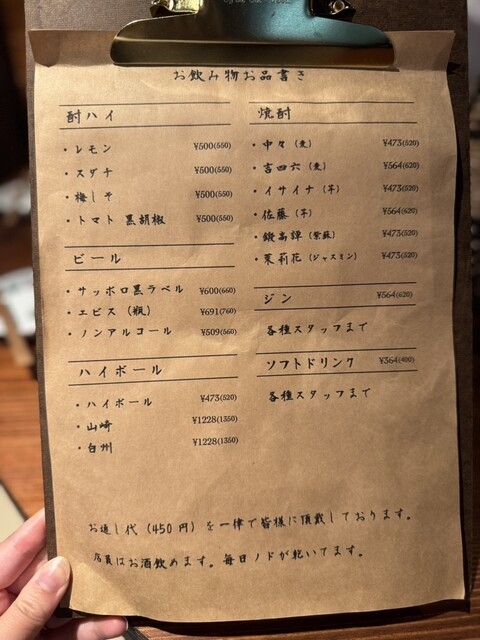 お飲み物お品書き
酎ハイ
・レモン ¥500(550)
・スダチ ¥500(550)
・梅しそ ¥500(550)
・トマト 黒胡椒 ¥500(550)
ビール
・サッポロ黒ラベル ¥600(660)
・エビス（瓶） ¥691(760)
・ノンアルコール ¥509(560)
ハイボール
・ハイボール ¥473(520)
・山崎 ¥1228(1350)
・白州 ¥1228(1350)
焼酎
・中々（麦） ¥473(520)
・吉四六（麦） ¥564(620)
・イサイナ（芋） ¥473(520)
・佐藤（芋） ¥564(620)
・鍛高譚（紫蘇） ¥473(520)
・茉莉花（ジャスミン） ¥473(520)
ジン ¥564(620)
各種スタッフまで
ソフトドリンク ¥364(400)
各種スタッフまで
お通し代（450円）を一律で皆様に頂戴しております。
店員はお酒飲めます。毎日ノドが乾いてます。